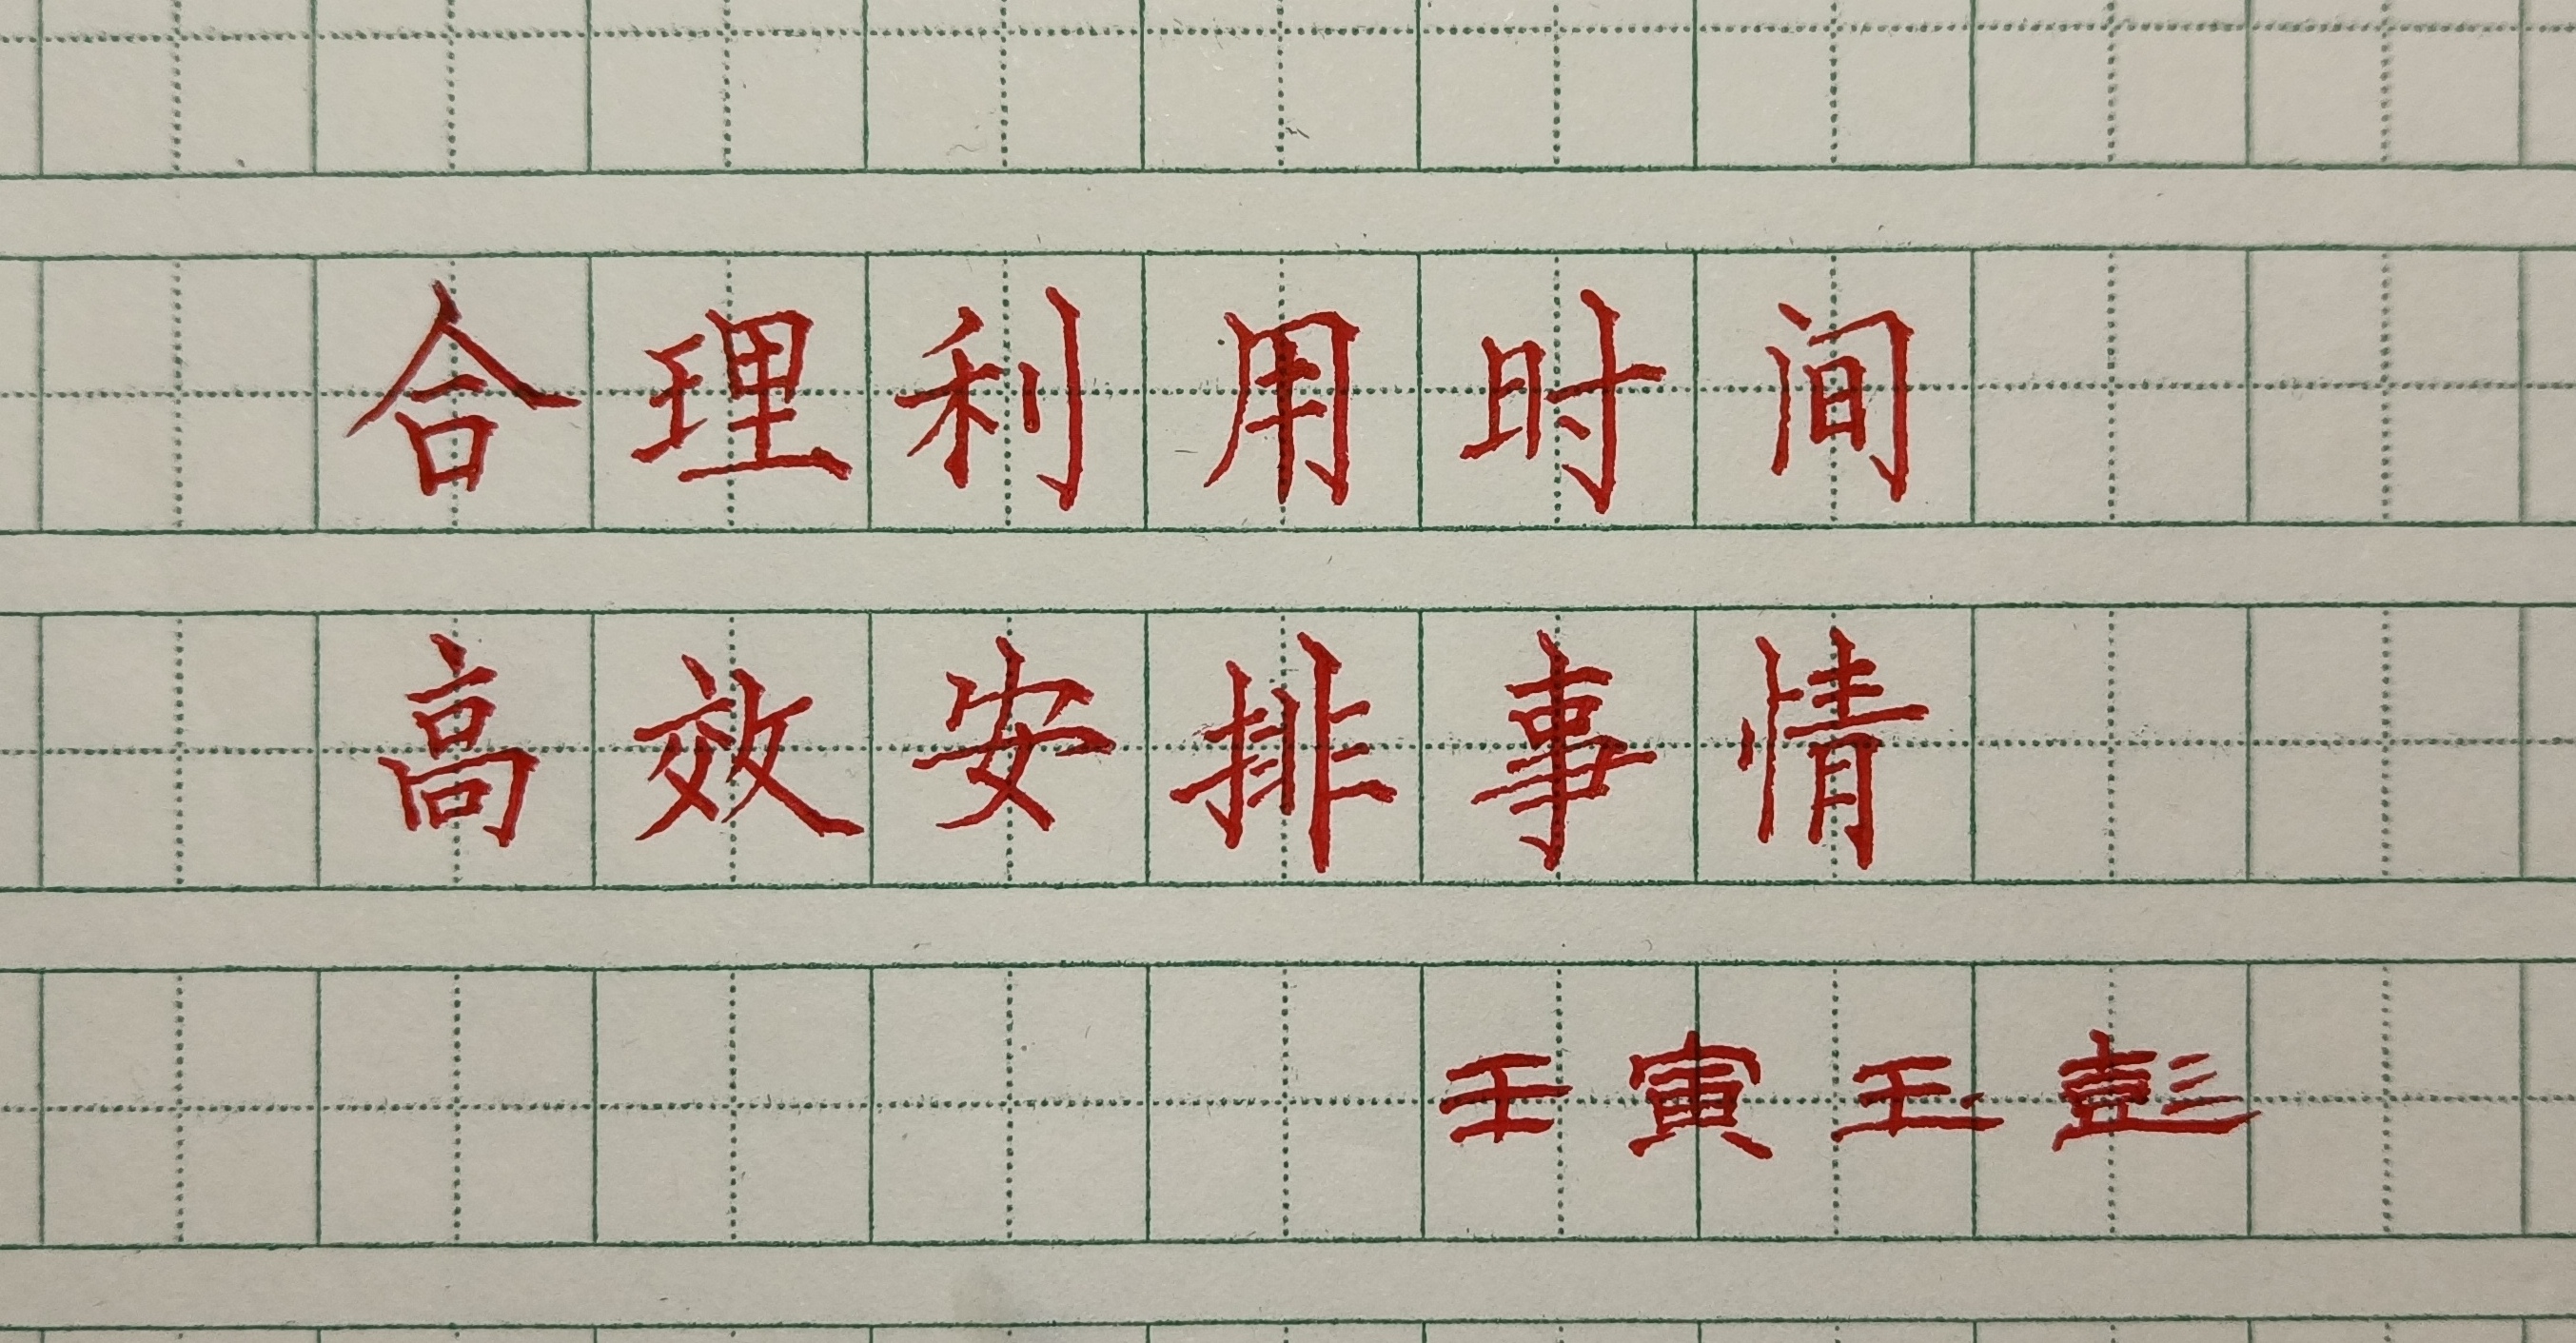 合理利用时间
高效安排事情
壬寅玉彭